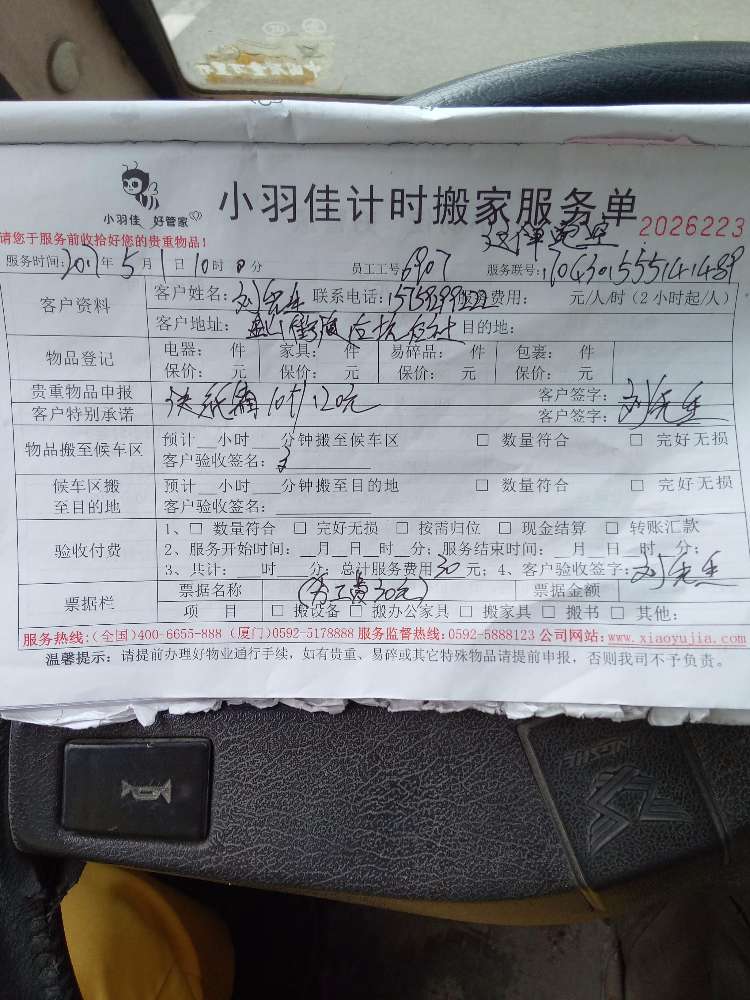 小羽佳 好管家
小羽佳计时搬家服务单
2026223
请您于服务前收拾好您的贵重物品！
服务时间：2017年5月1日10时0分 员工工号：6907 服务联号：170430155514148
客户资料
客户姓名：刘先生 联系电话： 服务费用： 元/人/时（2小时起/人）
客户地址： 目的地：
物品登记
电器： 件 家具： 件 易碎品： 件 包裹： 件
保价： 元 保价： 元 保价： 元 保价： 元
贵重物品申报
客户特别承诺
送纸箱10个/120元
客户签字：刘先生
客户签字：
物品搬至候车区
预计__小时__分钟搬至候车区 □ 数量符合 □ 完好无损
客户验收签名：
候车区搬至目的地
预计__小时__分钟搬至目的地 □ 数量符合 □ 完好无损
客户验收签名：
验收付费
1、□ 数量符合 □ 完好无损 □ 按需归位 □ 现金结算 □ 转账汇款
2、服务开始时间：__月__日__时__分；服务结束时间：__月__日__时__分；
3、共计：__时__分；总计服务费用30元；4、客户验收签字：刘先生
票据栏
票据名称 (员工费30元) 票据金额
项 目 □ 搬设备 □ 搬办公家具 □ 搬家具 □ 搬书 □ 其他：
服务热线：(全国)400-6655-888 (厦门)0592-5178888 服务监督热线：0592-5888123 公司网站：www.xiaoyujia.com
温馨提示：请提前办理好物业通行手续，如有贵重、易碎或其它特殊物品请提前申报，否则我司不予负责。